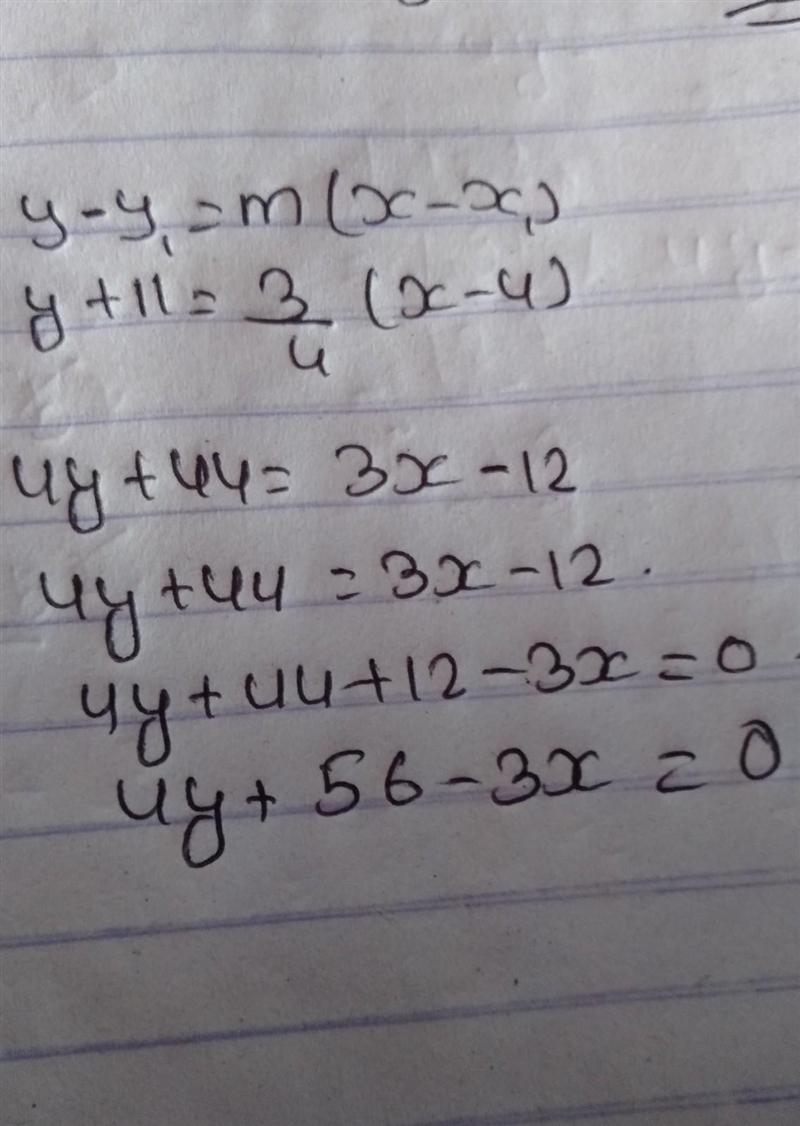 y - y₁ = m (x - x₁)
y + 11 = 3/4 (x - 4)
4y + 44 = 3x - 12
4y + 44 = 3x - 12.
4y + 44 + 12 - 3x = 0
4y + 56 - 3x = 0